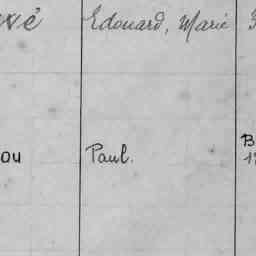 Edouard, Marie
ou Paul. B